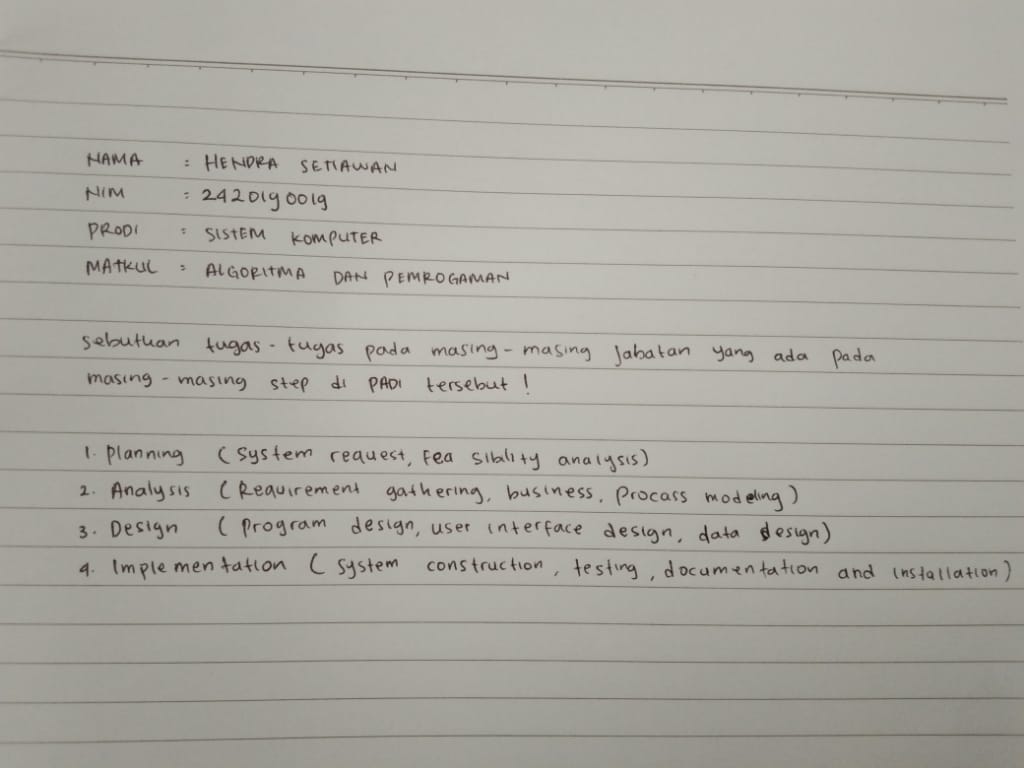 NAMA : HENDRA SETIAWAN
NIM : 2420190019
PRODI : SISTEM KOMPUTER
MATKUL : ALGORITMA DAN PEMROGAMAN
Sebutkan tugas-tugas pada masing-masing Jabatan yang ada pada
masing-masing step di PADI tersebut!
1. Planning (System request, Fea sibility analysis)
2. Analysis (Requirement gathering, business, Process modeling)
3. Design (program design, user interface design, data design)
4. Implementation (System construction, testing, documentation and installation)